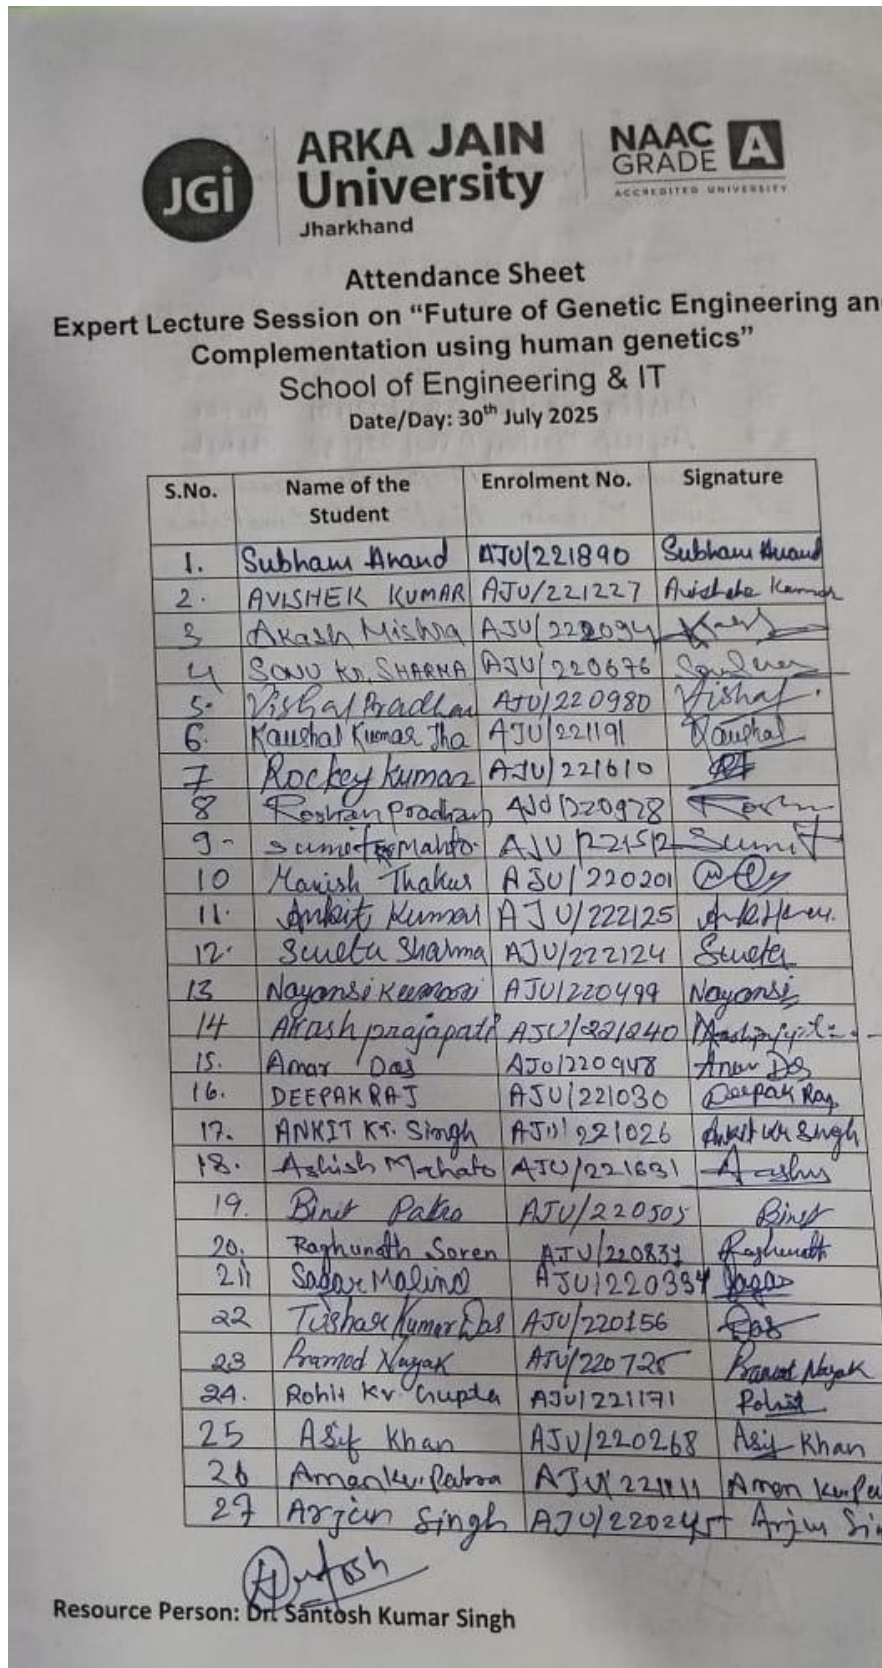 JGi
ARKA JAIN
University
Jharkhand
NAAC
GRADE A
ACCREDITED UNIVERSITY
Attendance Sheet
Expert Lecture Session on “Future of Genetic Engineering an
Complementation using human genetics”
School of Engineering & IT
Date/Day: 30th July 2025
S.No. Name of the Student Enrolment No. Signature
1. Subham Anand AJU/221890 Subham Anand
2. AVISHEK KUMAR AJU/221227 Avishek Kumar
3 Akash Mishra
4 SONU Kr. SHARMA AJU/220676
5. Vishal Pradhan AJU/220980 Vishal
6. Kaushal Kumar Jha AJU/221191 Kaushal
7 Rockey Kumar AJU/221610
8 Roshan Pradhan AJU/220928 Roshan
9- Sumit Mahto. AJU/221512 Sumit
10 Manish Thakur AJU/220201
11. Ankit Kumar AJU/222125
12. Sweta Sharma AJU/222124 Sweta
13 Nayansi Kumari AJU/220499 Nayansi
14 Akash prajapati AJU/221240
15. Amar Das AJU/220948 Amar Das
16. DEEPAK RAJ AJU/221030 Deepak Raj
17. ANKIT Kr. Singh AJU/221026 Ankit Kr Singh
18. Ashish Mahato AJU/221631
19. Binit Patra AJU/220505 Binit
20. Raghunath Soren Raghunath
21 Sagar Malind Sagar
22 Tushar Kumar Das AJU/220156 Das
23 Pramod Nayak AJU/220725 Pramod Nayak
24. Rohit Kr. Gupta AJU/221171 Rohit
25 Asif Khan AJU/220268 Asif Khan
26 Aman kr. Patra Aman kr. Pa
27 Arjun Singh Arjun Si
Santosh
Resource Person: Dr. Santosh Kumar Singh